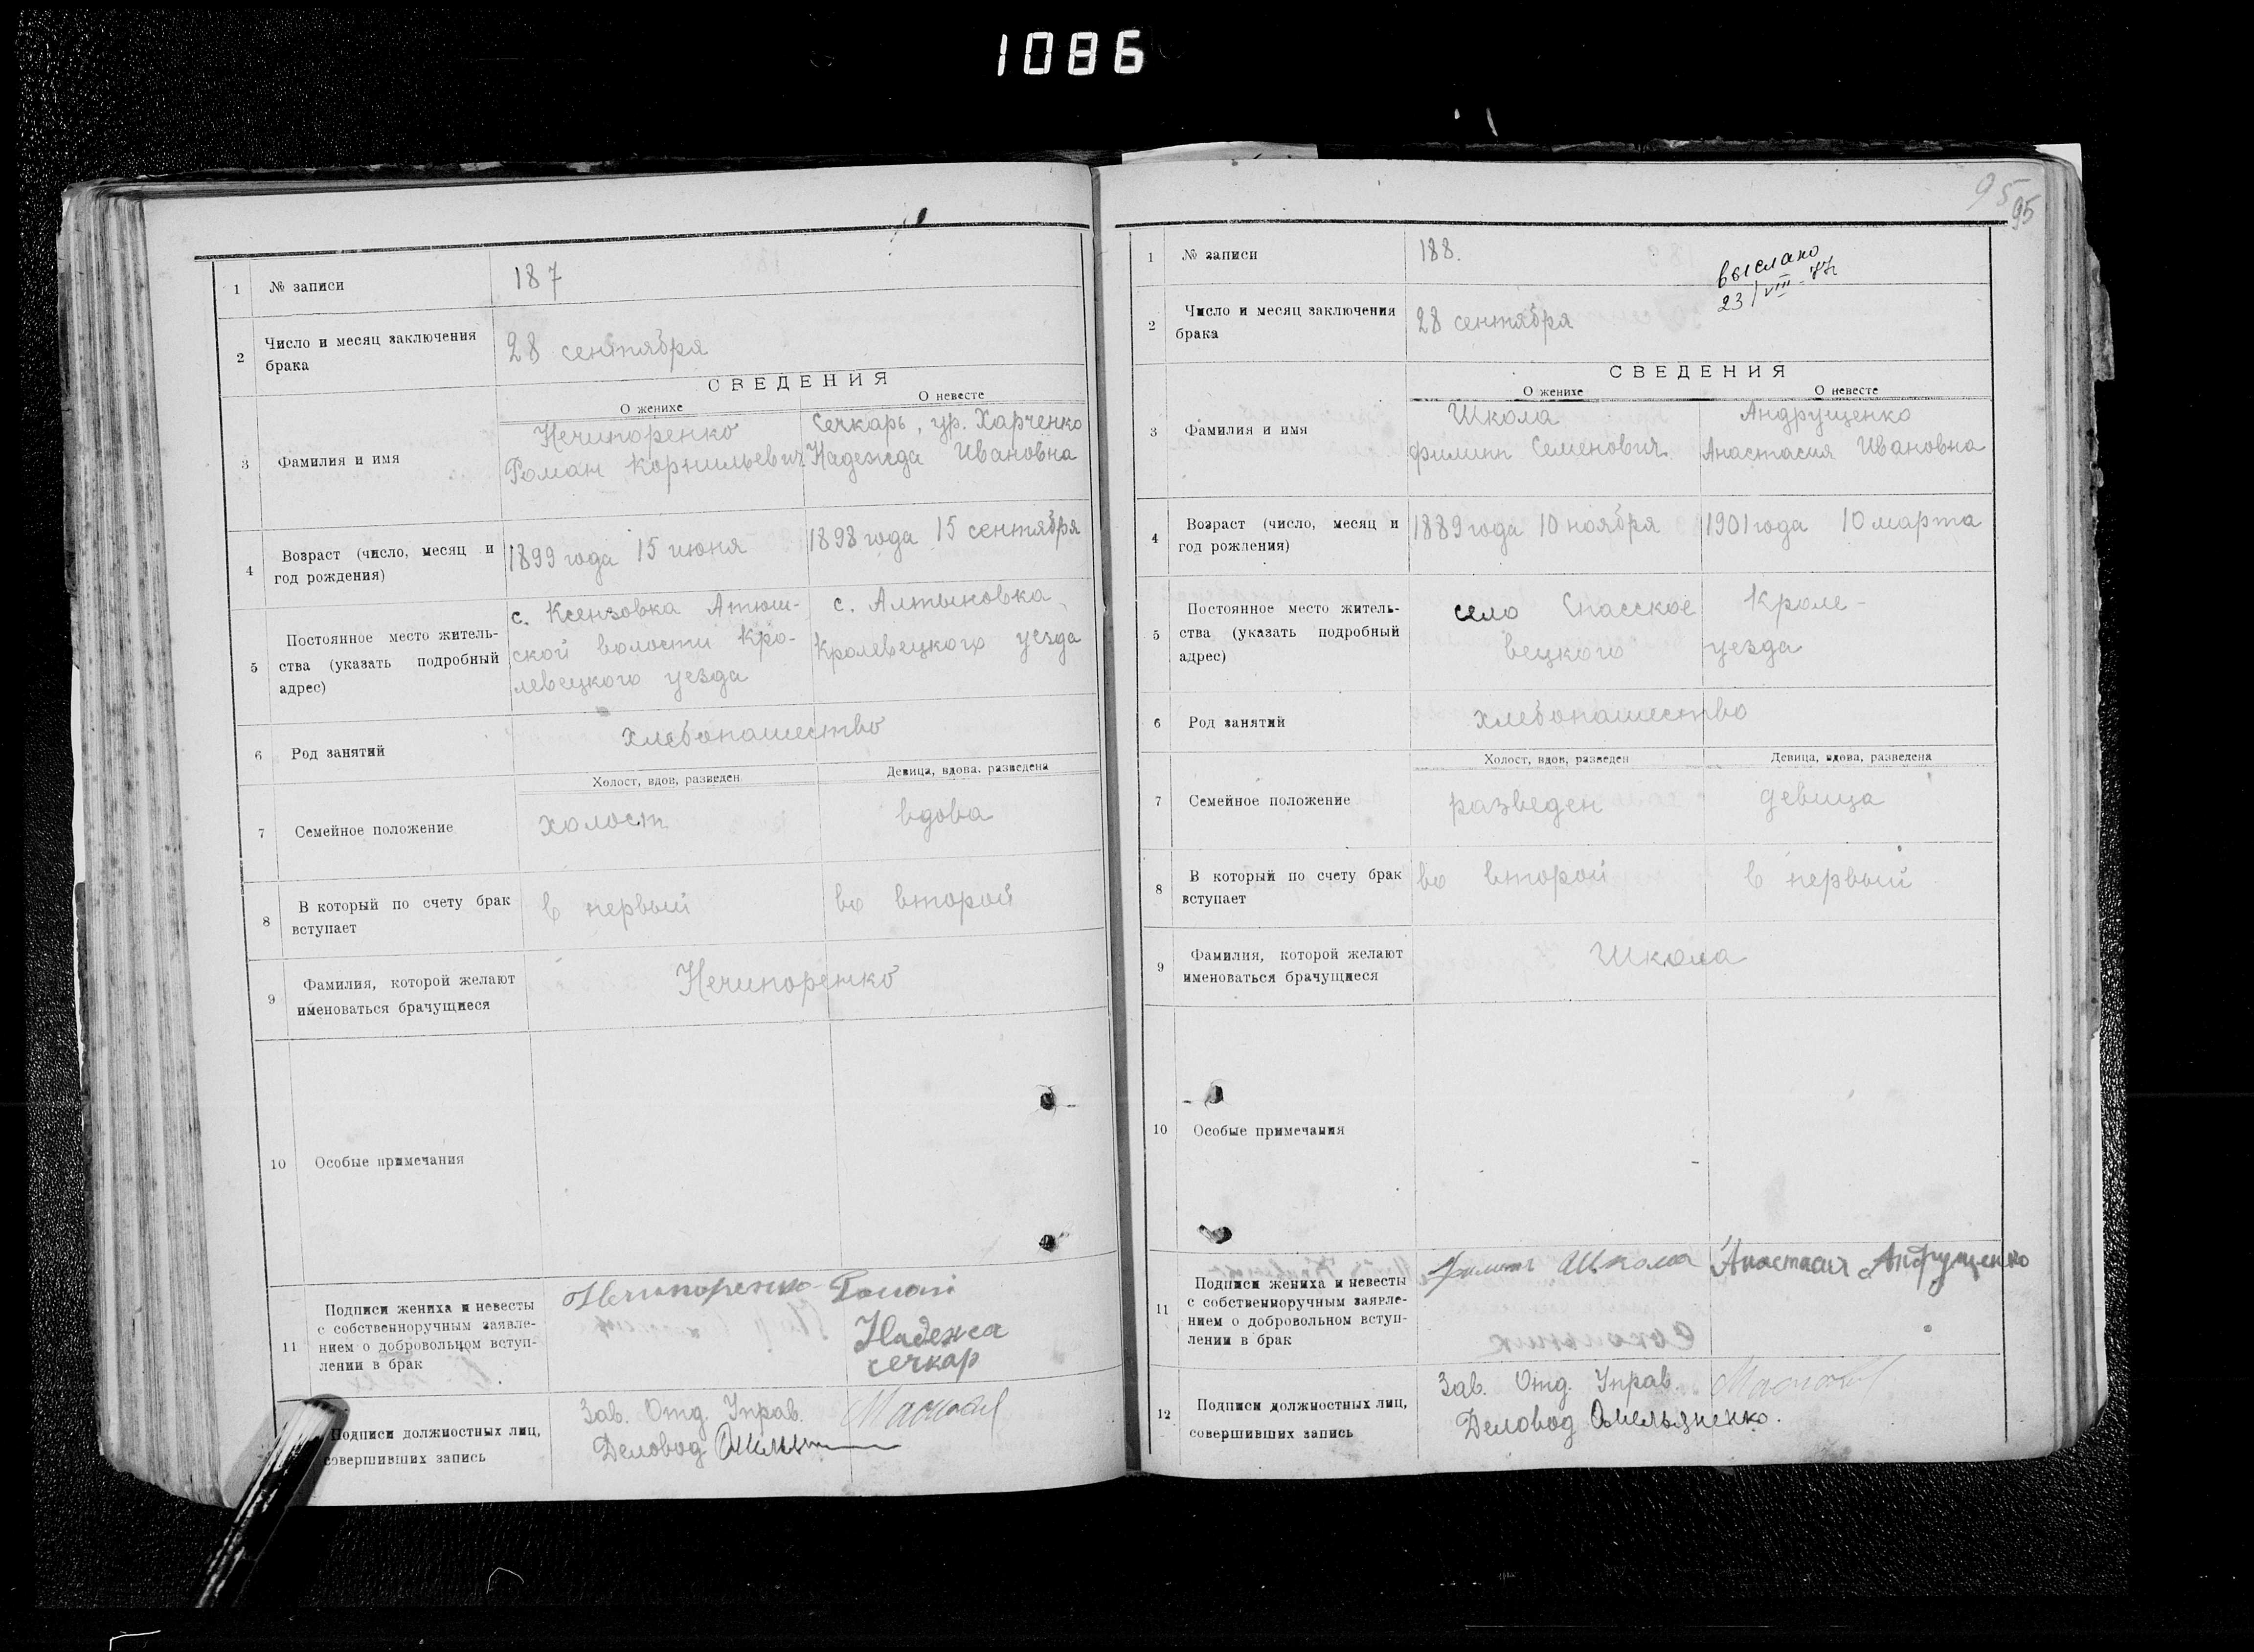 1086
1 № записи 187
2 Число и месяц заключения
брака
28 сентября
СВЕДЕНИЯ
О женихе О невесте
3 Фамилия и имя
Нечипоренко
Роман Корнильевич
Сечкарь, ур. Харченко
Надежда Ивановна
4 Возраст (число, месяц и
год рождения)
1899 года 15 июня
1898 года 15 сентября
5 Постоянное место житель-
ства (указать подробный
адрес)
с. Ксензовка Атюш-
ской волости Кро-
левецкого уезда
с. Алтыновка
Кролевецкого уезда
6 Род занятий
хлебопашество
Холост, вдов, разведен Девица, вдова. разведена
7 Семейное положение
холост вдова
8 В который по счету брак
вступает
в первый во второй
9 Фамилия, которой желают
именоваться брачущиеся
Нечипоренко
10 Особые примечания
11 Подписи жениха и невесты
с собственноручным заявле-
нием о добровольном вступ-
лении в брак
Нечипоренко Роман
Надежса
сечкар
Подписи должностных лиц,
совершивших запись
Зав. Отд. Управ.
Деловод
95 95
1 № записи 188.
выслано
23/VIII-77г
2 Число и месяц заключения
брака
28 сентября
СВЕДЕНИЯ
О женихе О невесте
3 Фамилия и имя
Школа
Филипп Семенович
Андрущенко
Анастасия Ивановна
4 Возраст (число, месяц и
год рождения)
1889 года 10 ноября
1901 года 10 марта
5 Постоянное место житель-
ства (указать подробный
адрес)
село Спасское Кроле-
вецкого уезда
6 Род занятий
хлебопашество
Холост, вдов, разведен Девица, вдова, разведена
7 Семейное положение
разведен девица
8 В который по счету брак
вступает
во второй в первый
9 Фамилия, которой желают
именоваться брачущиеся
Школа
10 Особые примечания
11 Подписи жениха и невесты
с собственноручным заявле-
нием о добровольном вступ-
лении в брак
Филипп Школа Анастасия Андрущенко
12 Подписи должностных лиц,
совершивших запись
Зав. Отд. Управ.
Деловод Омельяненко.